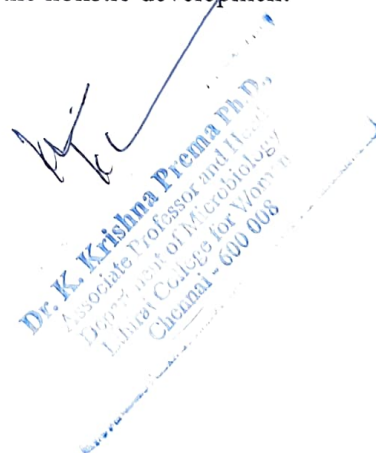 holistic development
Dr. K. Krishna Prema Ph.D.,
Associate Professor and Head
Department of Microbiology
College for Women
Chennai - 600 008